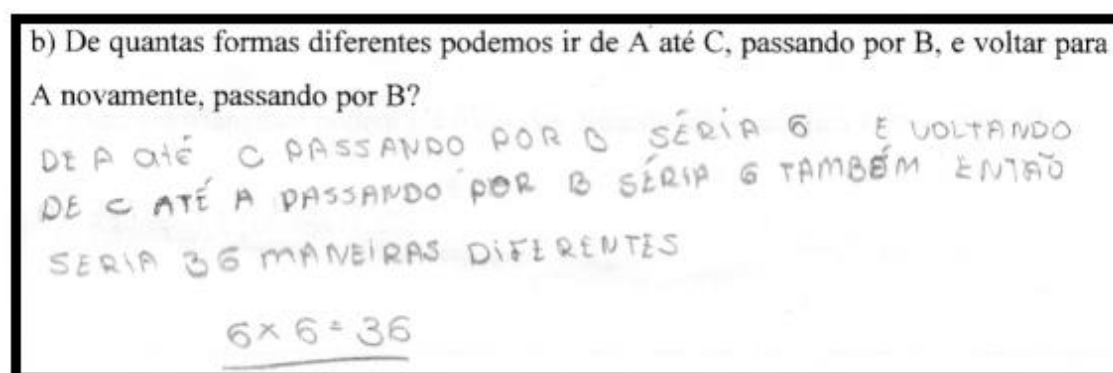 b) De quantas formas diferentes podemos ir de A até C, passando por B, e voltar para
A novamente, passando por B?
DE A até C PASSANDO POR B SÉRIA 6 E VOLTANDO
DE C ATÉ A PASSANDO POR B SÉRIA 6 TAMBÉM ENTÃO
SERIA 36 MANEIRAS DIFERENTES
6 × 6 = 36